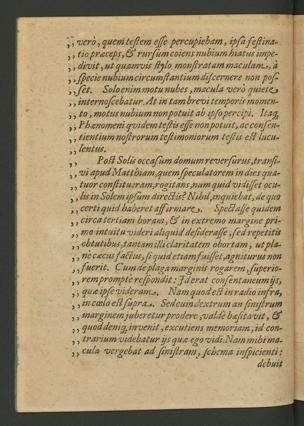 ,, verò, quem testem esse percupiebam, ipsa festina-
,, tio præceps, & rursum coiens nubium hiatus impe-
,, divit, ut quamvis stylo monstratam maculam, à
,, specie nubium circumstantium discernere non pos-
,, set. Solo enim motu nubes, macula verò quiete
,, internoscebatur. At in tam brevi temporis momen-
,, to, motus nubium non potuit ab ipso percipi. Itaq,
,, Phænomeni quidem testis esse non potuit, ac consen-
,, tientium nostrorum testimoniorum testis est locu-
,, lentus.
,, Post Solis occasum domum reversurus, transi-
,, vi apud Matthiam, quem speculatorem in dies qua-
,, tuor constitueram, rogitans, num quid vidisset ocu-
,, lis in Solem ipsum directis? Nihil, inquiebat, de quo
,, certi quid haberet affirmare. Spectasse quidem
,, circa tertiam horam, & in extremo margine pri-
,, mo intuitu videri aliquid desiderasse, sed repetitis
,, obtutibus, tantam illi claritatem obortam, ut pla-
,, ne cæcus factus, si quid etiam fuisset, agniturus non
,, fuerit. Cum de plaga marginis rogarem, superio-
,, rem prompte respondit: Id erat consentaneum ijs,
,, quæ ipse videram. Nam quod est in radio infra,
,, in cœlo est supra. Sed cum dextrum an sinistrum
,, marginem juberetur prodere, valdè hæsitavit, &
,, quod deniq, invenit, excutiens memoriam, id con-
,, trarium videbatur ijs quæ ego vidi. Nam mihi ma-
,, cula vergebat ad sinistram, schema inspicienti:
debuit